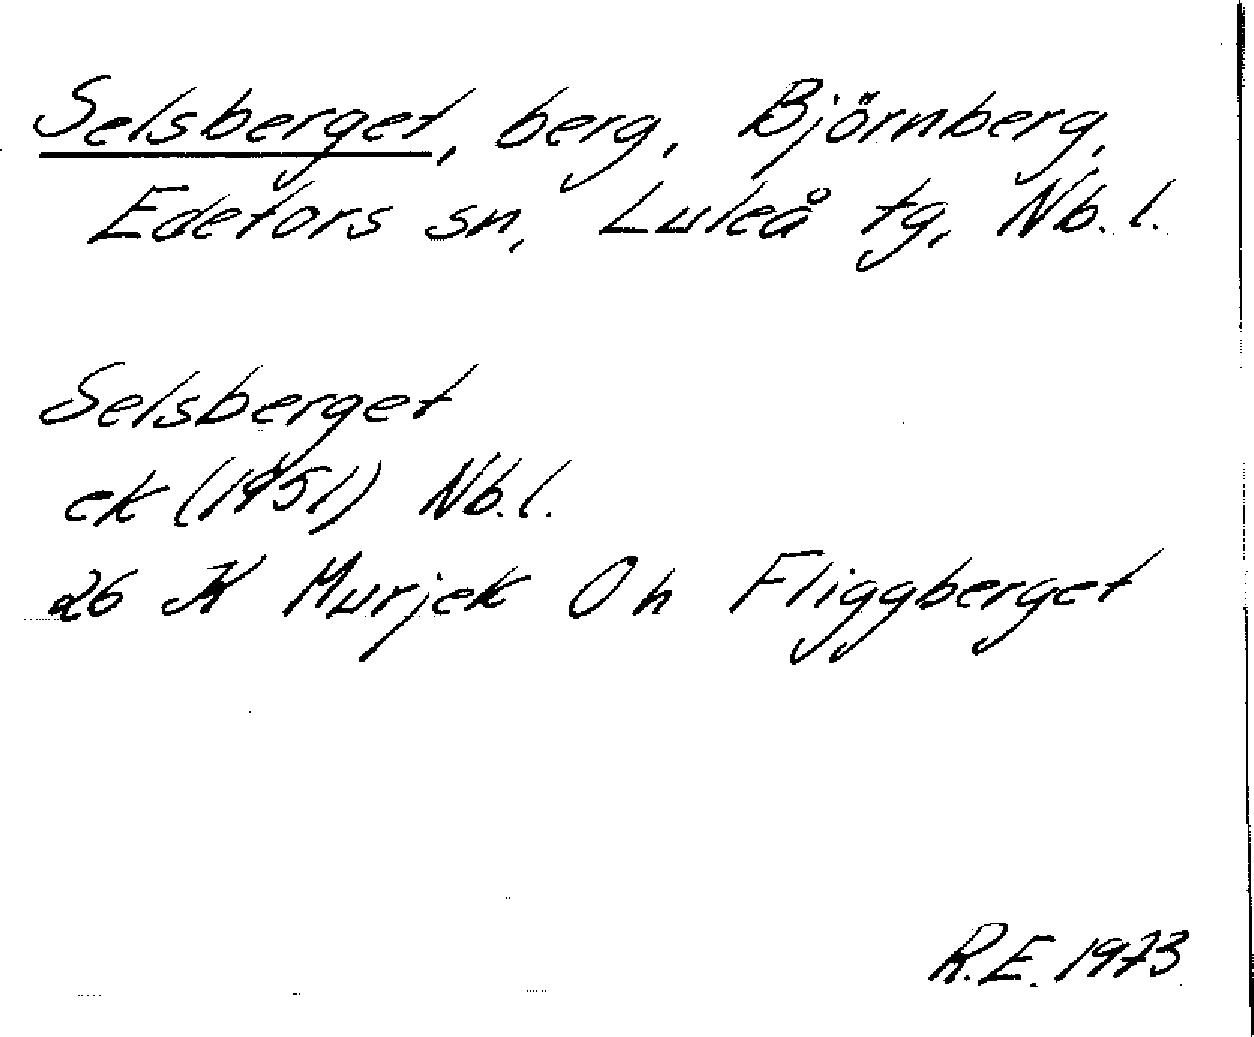 Selsberget, berg, Björnberg,
Edefors sn, Luleå tg, Nb. l.
Selsberget
ek (1951) Nb. l.
26 K Murjek O h Fliggberget
R.E. 1973